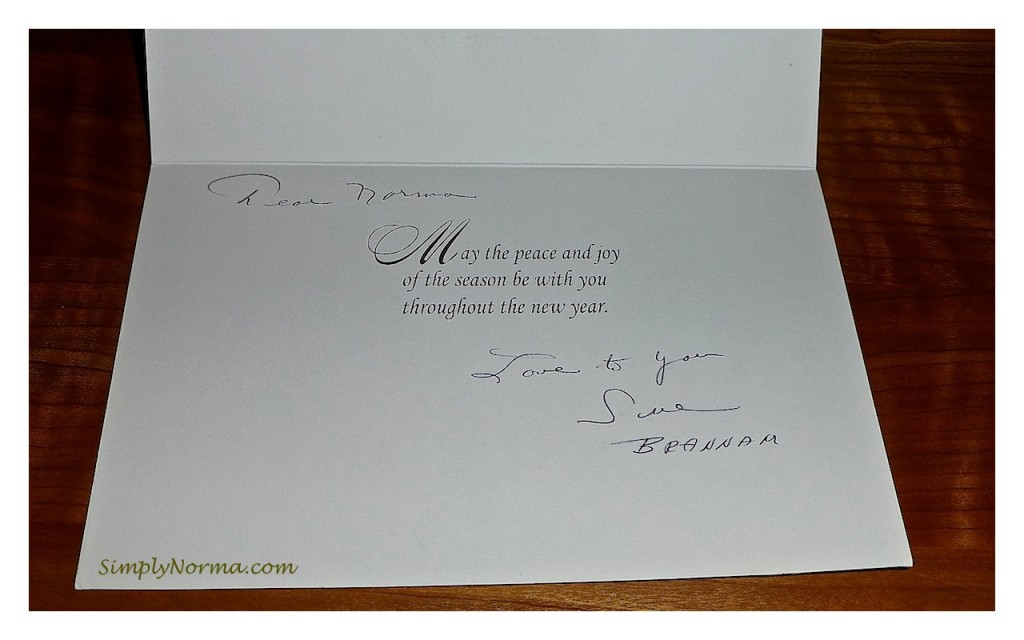 Dear Norma
May the peace and joy
of the season be with you
throughout the new year.
Love to you
Sue
BRANNAM
SimplyNorma.com